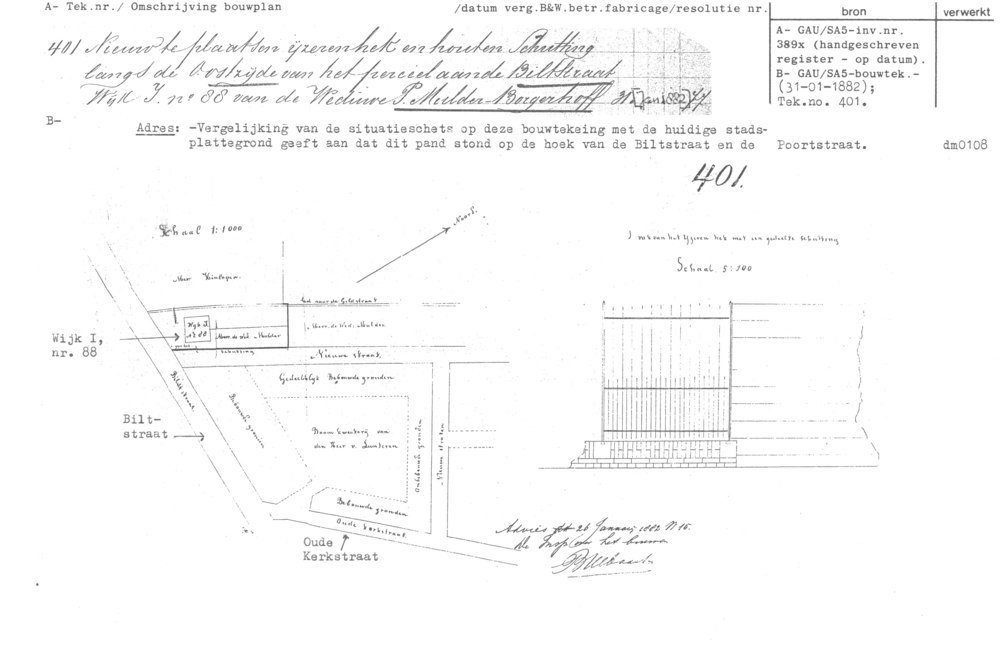 A- Tek.nr./ Omschrijving bouwplan /datum verg.B&W.betr.fabricage/resolutie nr. bron verwerkt
401 Nieuw te plaatsen ijzeren hek en houten Schutting
langs de Oostzijde van het perceel aan de Biltstraat
Wijk I. no 88 van de Weduwe P. Mulder-Borgerhoff 31 Jan 1882
A- GAU/SA5-inv.nr.
389x (handgeschreven
register - op datum).
B- GAU/SA5-bouwtek.-
(31-01-1882);
Tek.no. 401.
B-
Adres: -Vergelijking van de situatieschets op deze bouwtekeing met de huidige stads-
plattegrond geeft aan dat dit pand stond op de hoek van de Biltstraat en de Poortstraat. dm0108
401.
Schaal 1:1000
Noord.
van het IJzeren hek met een gedeelte schutting
Schaal 5:100
Wijk I
no 88
Schutting
Wijk I,
nr. 88
Nieuwe straat
Biltstraat
Gedeeltelijk Bebouwde gronden
Bebouwde gronden
Boomkweekerij van
den Heer v. Lunteren
Onbebouwde gronden
Nieuwe straten
Bilt-
straat
Bebouwde gronden
Oude Kerkstraat
Oude
Kerkstraat
Advies 26 Januarij 1882 N 16.
De Insp.